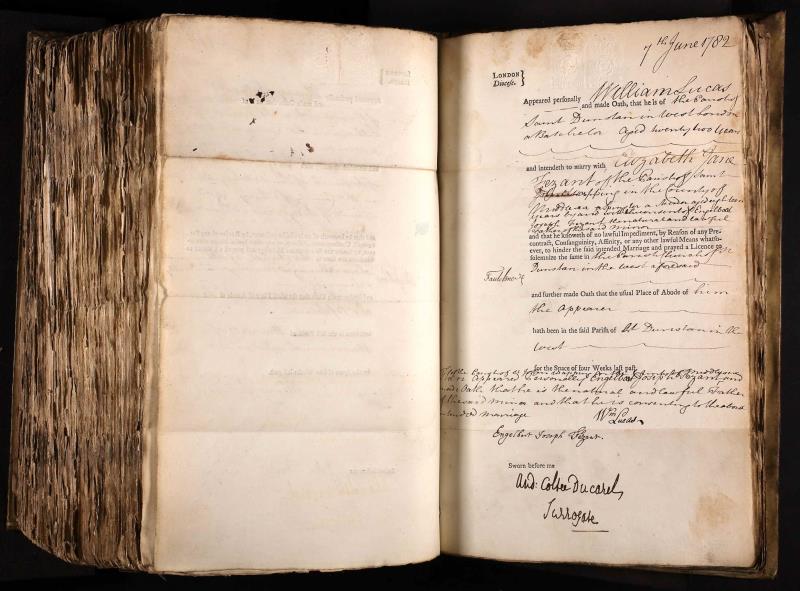 7th June 1782
London
Diocese.
Appeared personally William Lucas
and made Oath, that he is of the Parish of
Saint Dunstan in west London
a Batchelor Aged twenty two years
and intendeth to marry with Elizabeth Jane
Tezant of the Parish of Saint
Wapping in the County of
Middlesex a spinster a Minor aged eighteen
years by and with the consent of Engelbert
Joseph Tezant the natural and lawful
Father of the said Minor
and that he knoweth of no lawful Impediment, by Reason of any Pre-
contract, Consanguinity, Affinity, or any other lawful Means whatso-
ever, to hinder the said intended Marriage and prayed a Licence to
solemnize the same in the Parish Church of St
Dunstan in the west aforesaid
and further made Oath that the usual Place of Abode of him
the Appearer
hath been in the said Parish of St Dunstan in the
West
for the Space of four Weeks last past.
appeared Personally Engelbert Joseph Tezant and
made Oath that he is the natural and lawful Father
of the said minor and that he is consenting to the above
intended marriage
Wm Lucas
Engelbert Joseph Tezant.
Sworn before me
And: Coltee Ducarel,
Surrogate